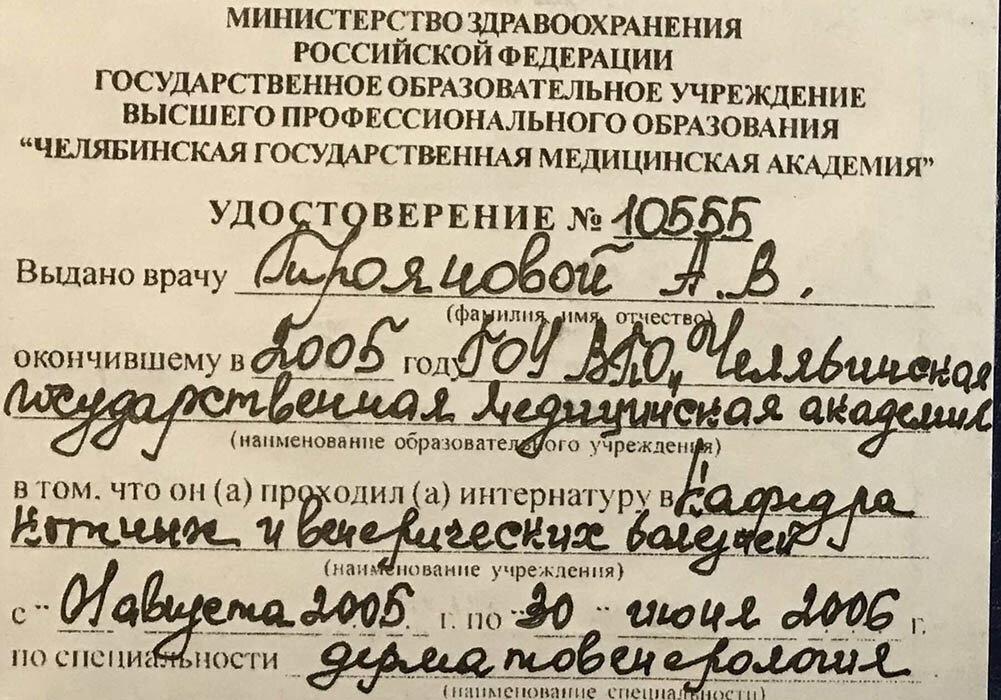 МИНИСТЕРСТВО ЗДРАВООХРАНЕНИЯ
РОССИЙСКОЙ ФЕДЕРАЦИИ
ГОСУДАРСТВЕННОЕ ОБРАЗОВАТЕЛЬНОЕ УЧРЕЖДЕНИЕ
ВЫСШЕГО ПРОФЕССИОНАЛЬНОГО ОБРАЗОВАНИЯ
“ЧЕЛЯБИНСКАЯ ГОСУДАРСТВЕННАЯ МЕДИЦИНСКАЯ АКАДЕМИЯ”
УДОСТОВЕРЕНИЕ № 10555
Выдано врачу Трояновой А.В.
(фамилия, имя, отчество)
окончившему в 2005 году ГОУ ВПО „Челябинская
государственная медицинская академия
(наименование образовательного учреждения)
в том, что он (а) проходил (а) интернатуру в Кафедра
кожных и венерических болезней
(наименование учреждения)
с “ 01 августа 2005 г. по “30” июня 2006 г.
по специальности дерматовенерология
(наименование специальности)